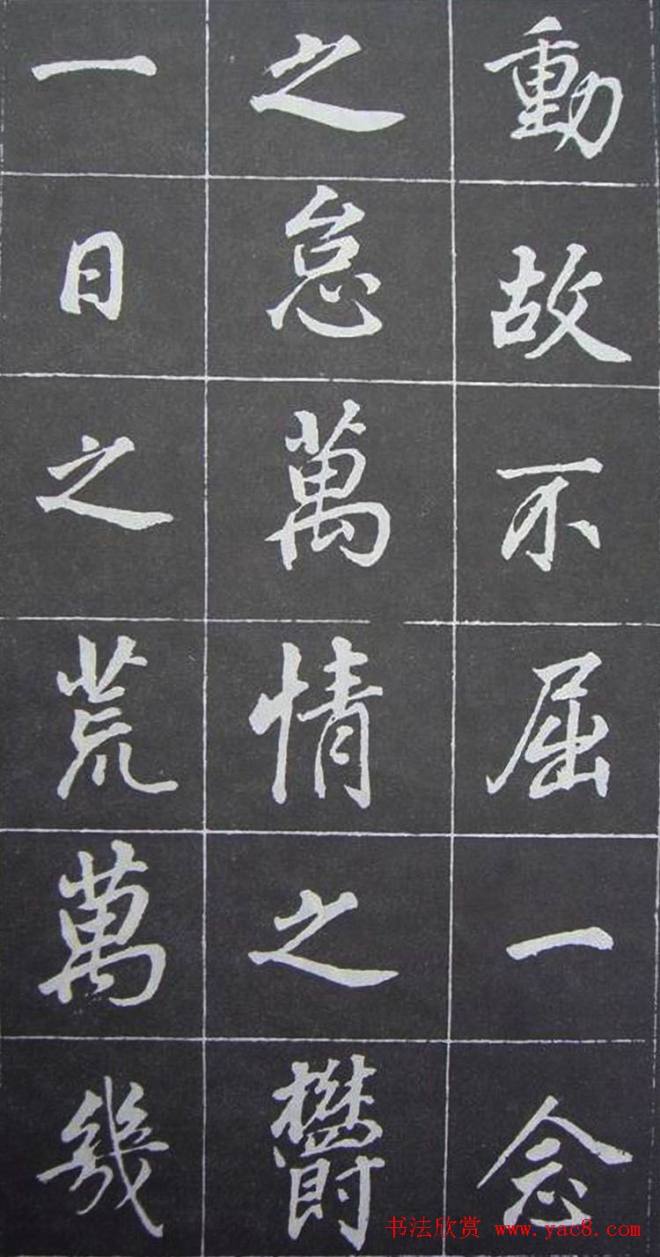 動故不屈一念
之怠萬情之欝
一日之荒萬幾
书法欣赏 www.yac8.com